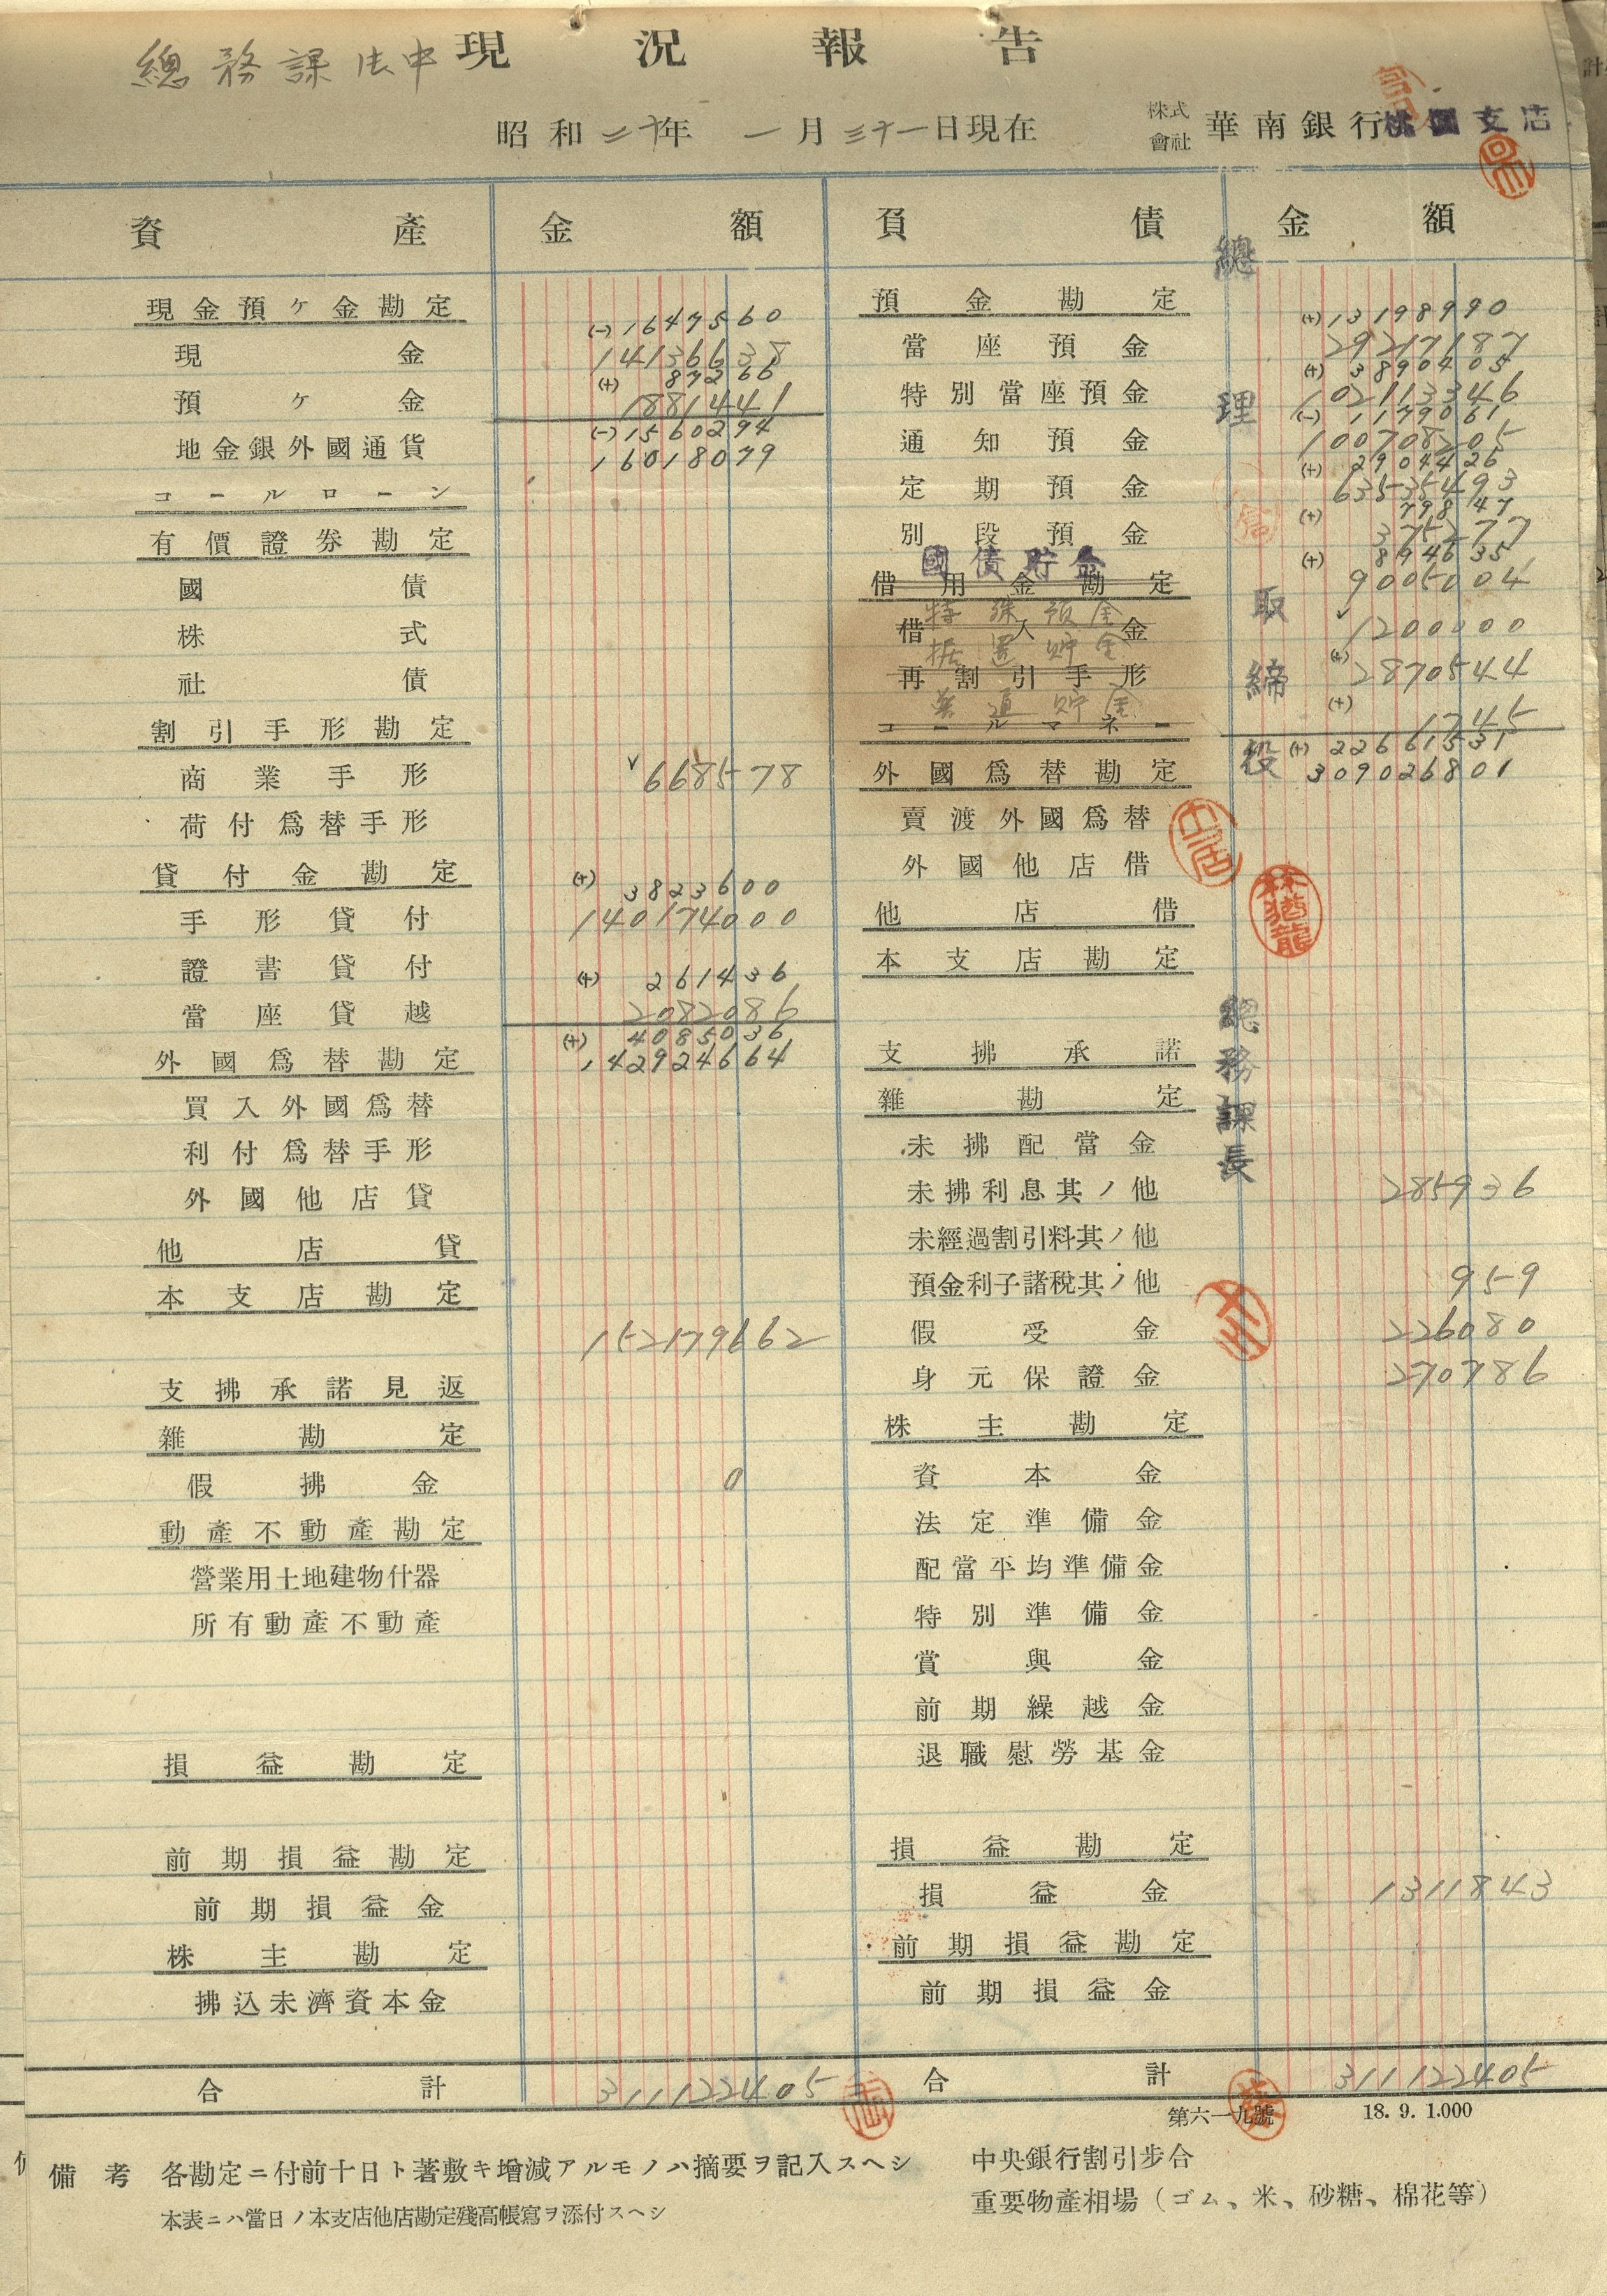 現況報告
總務課御中
昭和二十年一月三十一日現在
株式會社 華南銀行桃園支店
資產 金額 負債 金額
現金預ケ金勘定
(-)1647560
現金 14136638
(+)87266
預ケ金 1881441
(-)1560294
地金銀外國通貨 16018079
コールローン
有價證券勘定
國債
株式
社債
割引手形勘定
商業手形 668578
荷付爲替手形
貸付金勘定
(+)3823600
手形貸付 140174000
證書貸付
(+)261436
當座貸越 2082086
(+)4085036
外國爲替勘定
142924664
買入外國爲替
利付爲替手形
外國他店貸
他店貸
本支店勘定
152179662
支拂承諾見返
雜勘定
假拂金 0
動產不動產勘定
營業用土地建物什器
所有動產不動產
損益勘定
前期損益勘定
前期損益金
株主勘定
拂込未濟資本金
合計 311122405
預金勘定
(+)13198990
當座預金 29217187
(+)3890405
特別當座預金 102113346
(-)1179061
通知預金 100708205
(+)2904426
定期預金 63535493
(+)79847
別段預金 375277
(+)894635
國債貯金 9005004
借用金勘定
特殊預金 1200000
借入金
(+)
据置貯金 2870544
再割引手形
(+)
普通貯金 1745
コールマネー
(+)22661531
309026801
外國爲替勘定
賣渡外國爲替
外國他店借
他店借
本支店勘定
支拂承諾
雜勘定
未拂配當金
未拂利息其ノ他 285936
未經過割引料其ノ他
預金利子諸稅其ノ他 959
假受金 226080
身元保證金 270786
株主勘定
資本金
法定準備金
配當平均準備金
特別準備金
賞與金
前期繰越金
退職慰勞基金
損益勘定
損益金 1311843
前期損益勘定
前期損益金
合計 311122405
總理
取締役
總務課長
林猶龍
第六一九號 18.9.1.000
備考 各勘定ニ付前十日ト著敷キ增減アルモノハ摘要ヲ記入スヘシ
本表ニハ當日ノ本支店他店勘定殘高帳寫ヲ添付スヘシ
中央銀行割引步合
重要物產相場（ゴム、米、砂糖、棉花等）